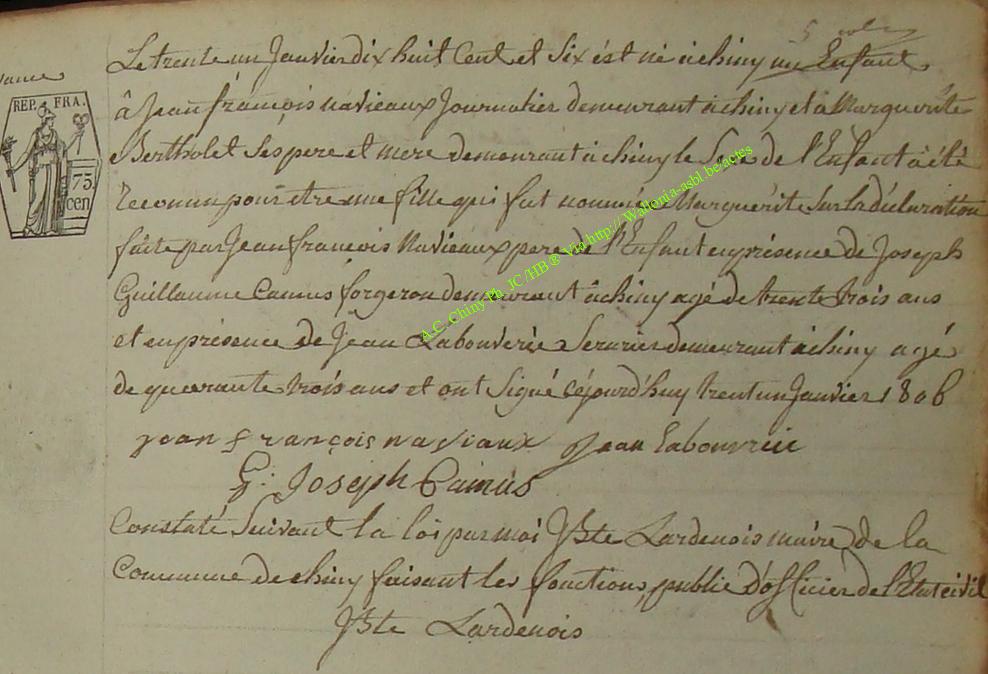 Le trente un Janvier dix huit Cent et Six ést né à chiny un Enfant
à Jean françois navieaux Journalier demeurant à chiny et à Marguerite
Bertholet Ses pere et mere demeurant à chiny le Sexe de l'Enfant à été
Reconnu pour être une fille qui fut nommée Marguérite Sur la déclaration
faite par Jean françois Navieaux pere de l'Enfant en présence de Joseph
Guillaume Camus forgeron demeurant à chiny agé de trente trois ans
et en présence de Jean Labouverie Serurier demeurant à chiny agé
de quarante trois ans et ont Signé cejourd'huy trent un Janvier 1806
jean françois naviaux Jean Labouvrie
G: Joseph Camus
Constaté Suivant la loi par moi JBte Lardenois maire de la
Commune de chiny faisant les fonctions publie d'officier de l'Etat civil
JBte Lardenois
REP. FRA.
75
cen
A.C. Chiny Ph. JC /HB ® Via http:// Wallonia-asbl.be/actes